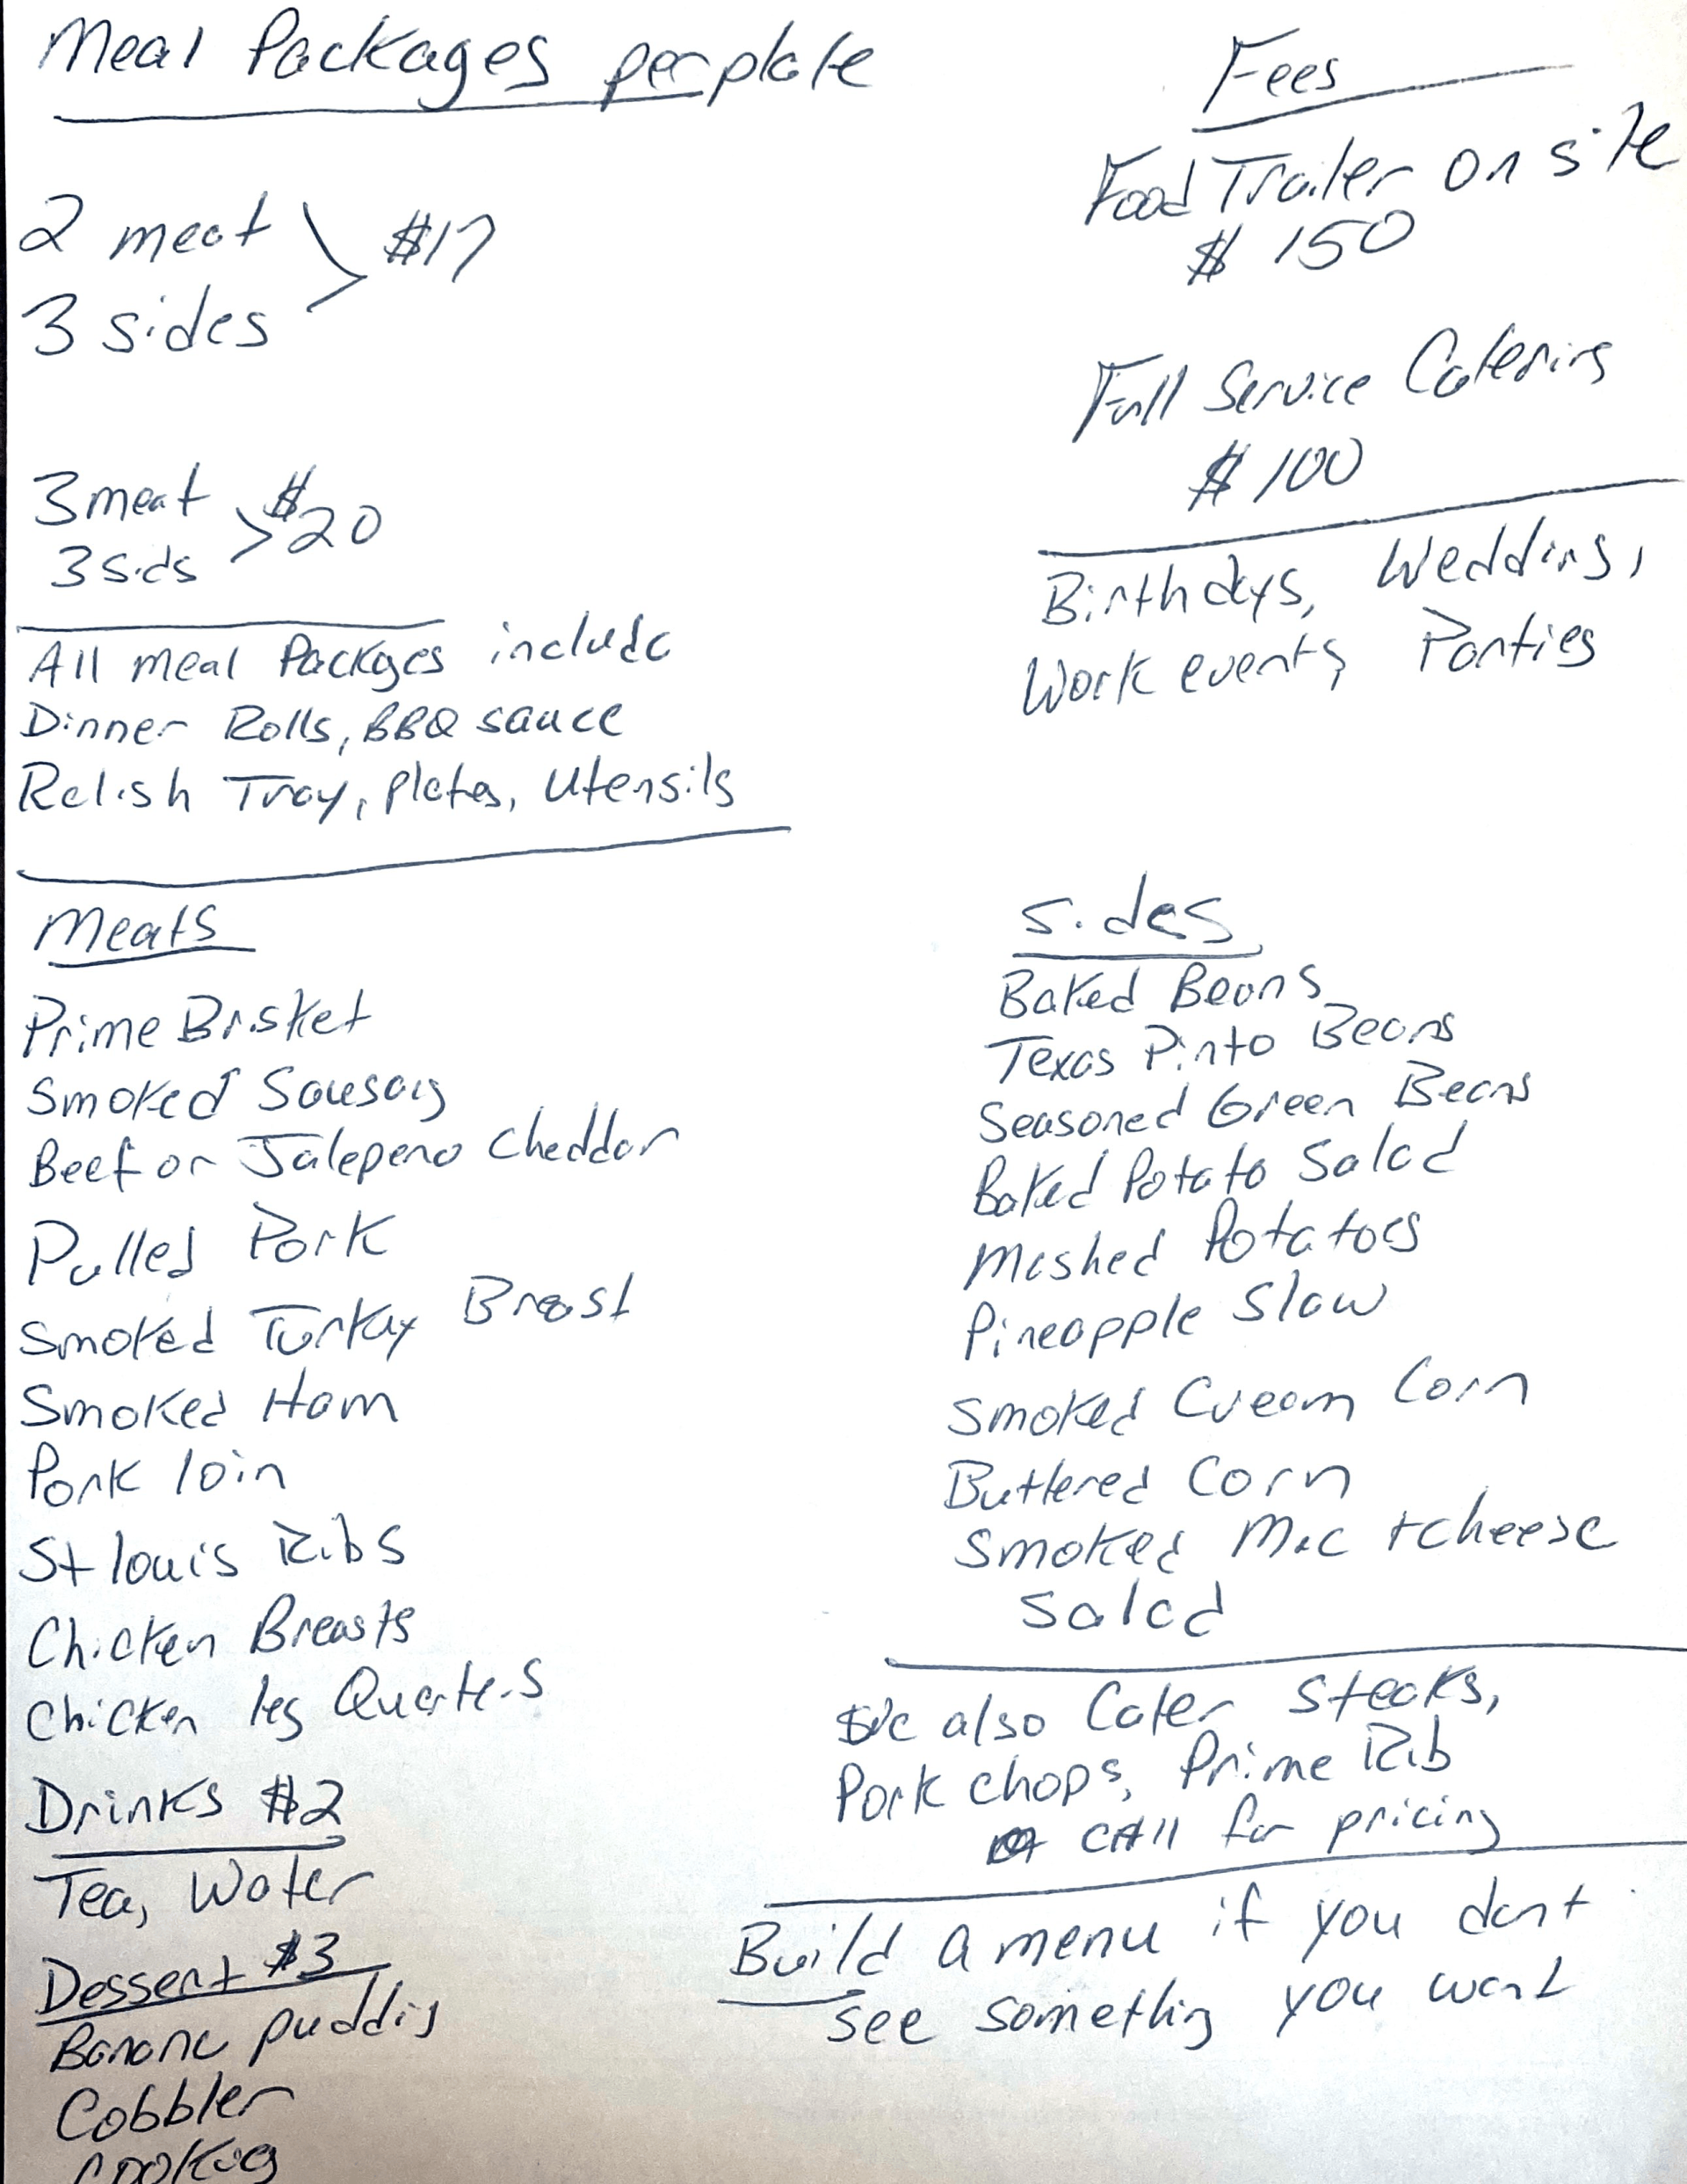 Meal Packages per plate
2 meat
3 sides
$17
3 meat
3 sids
$20
All meal Packages include
Dinner Rolls, BBQ sauce
Relish Tray, plates, Utensils
Fees
Food Trailer on site
$ 150
Full Service Catering
$ 100
Birthdays, Wedding,
Work events, Parties
Meats
Prime Brisket
Smoked Sausag
Beef or Jalepeno cheddar
Pulled Pork
Smoked Turkay Breast
Smoked Ham
Pork loin
St louis Ribs
Chicken Breasts
Chicken leg Quarters
Drinks $2
Tea, Water
Dessert $3
Banana pudding
Cobbler
Cookies
Sides
Baked Beans
Texas Pinto Beans
Seasoned Green Beans
Baked Potato Salad
Mashed Potatoes
Pineapple Slaw
Smoked Cream Corn
Buttered Corn
Smoked Mac + cheese
Salad
We also Cater Steaks,
Pork chops, Prime Rib
CAll for pricing
Build a menu if you dont
see something you want